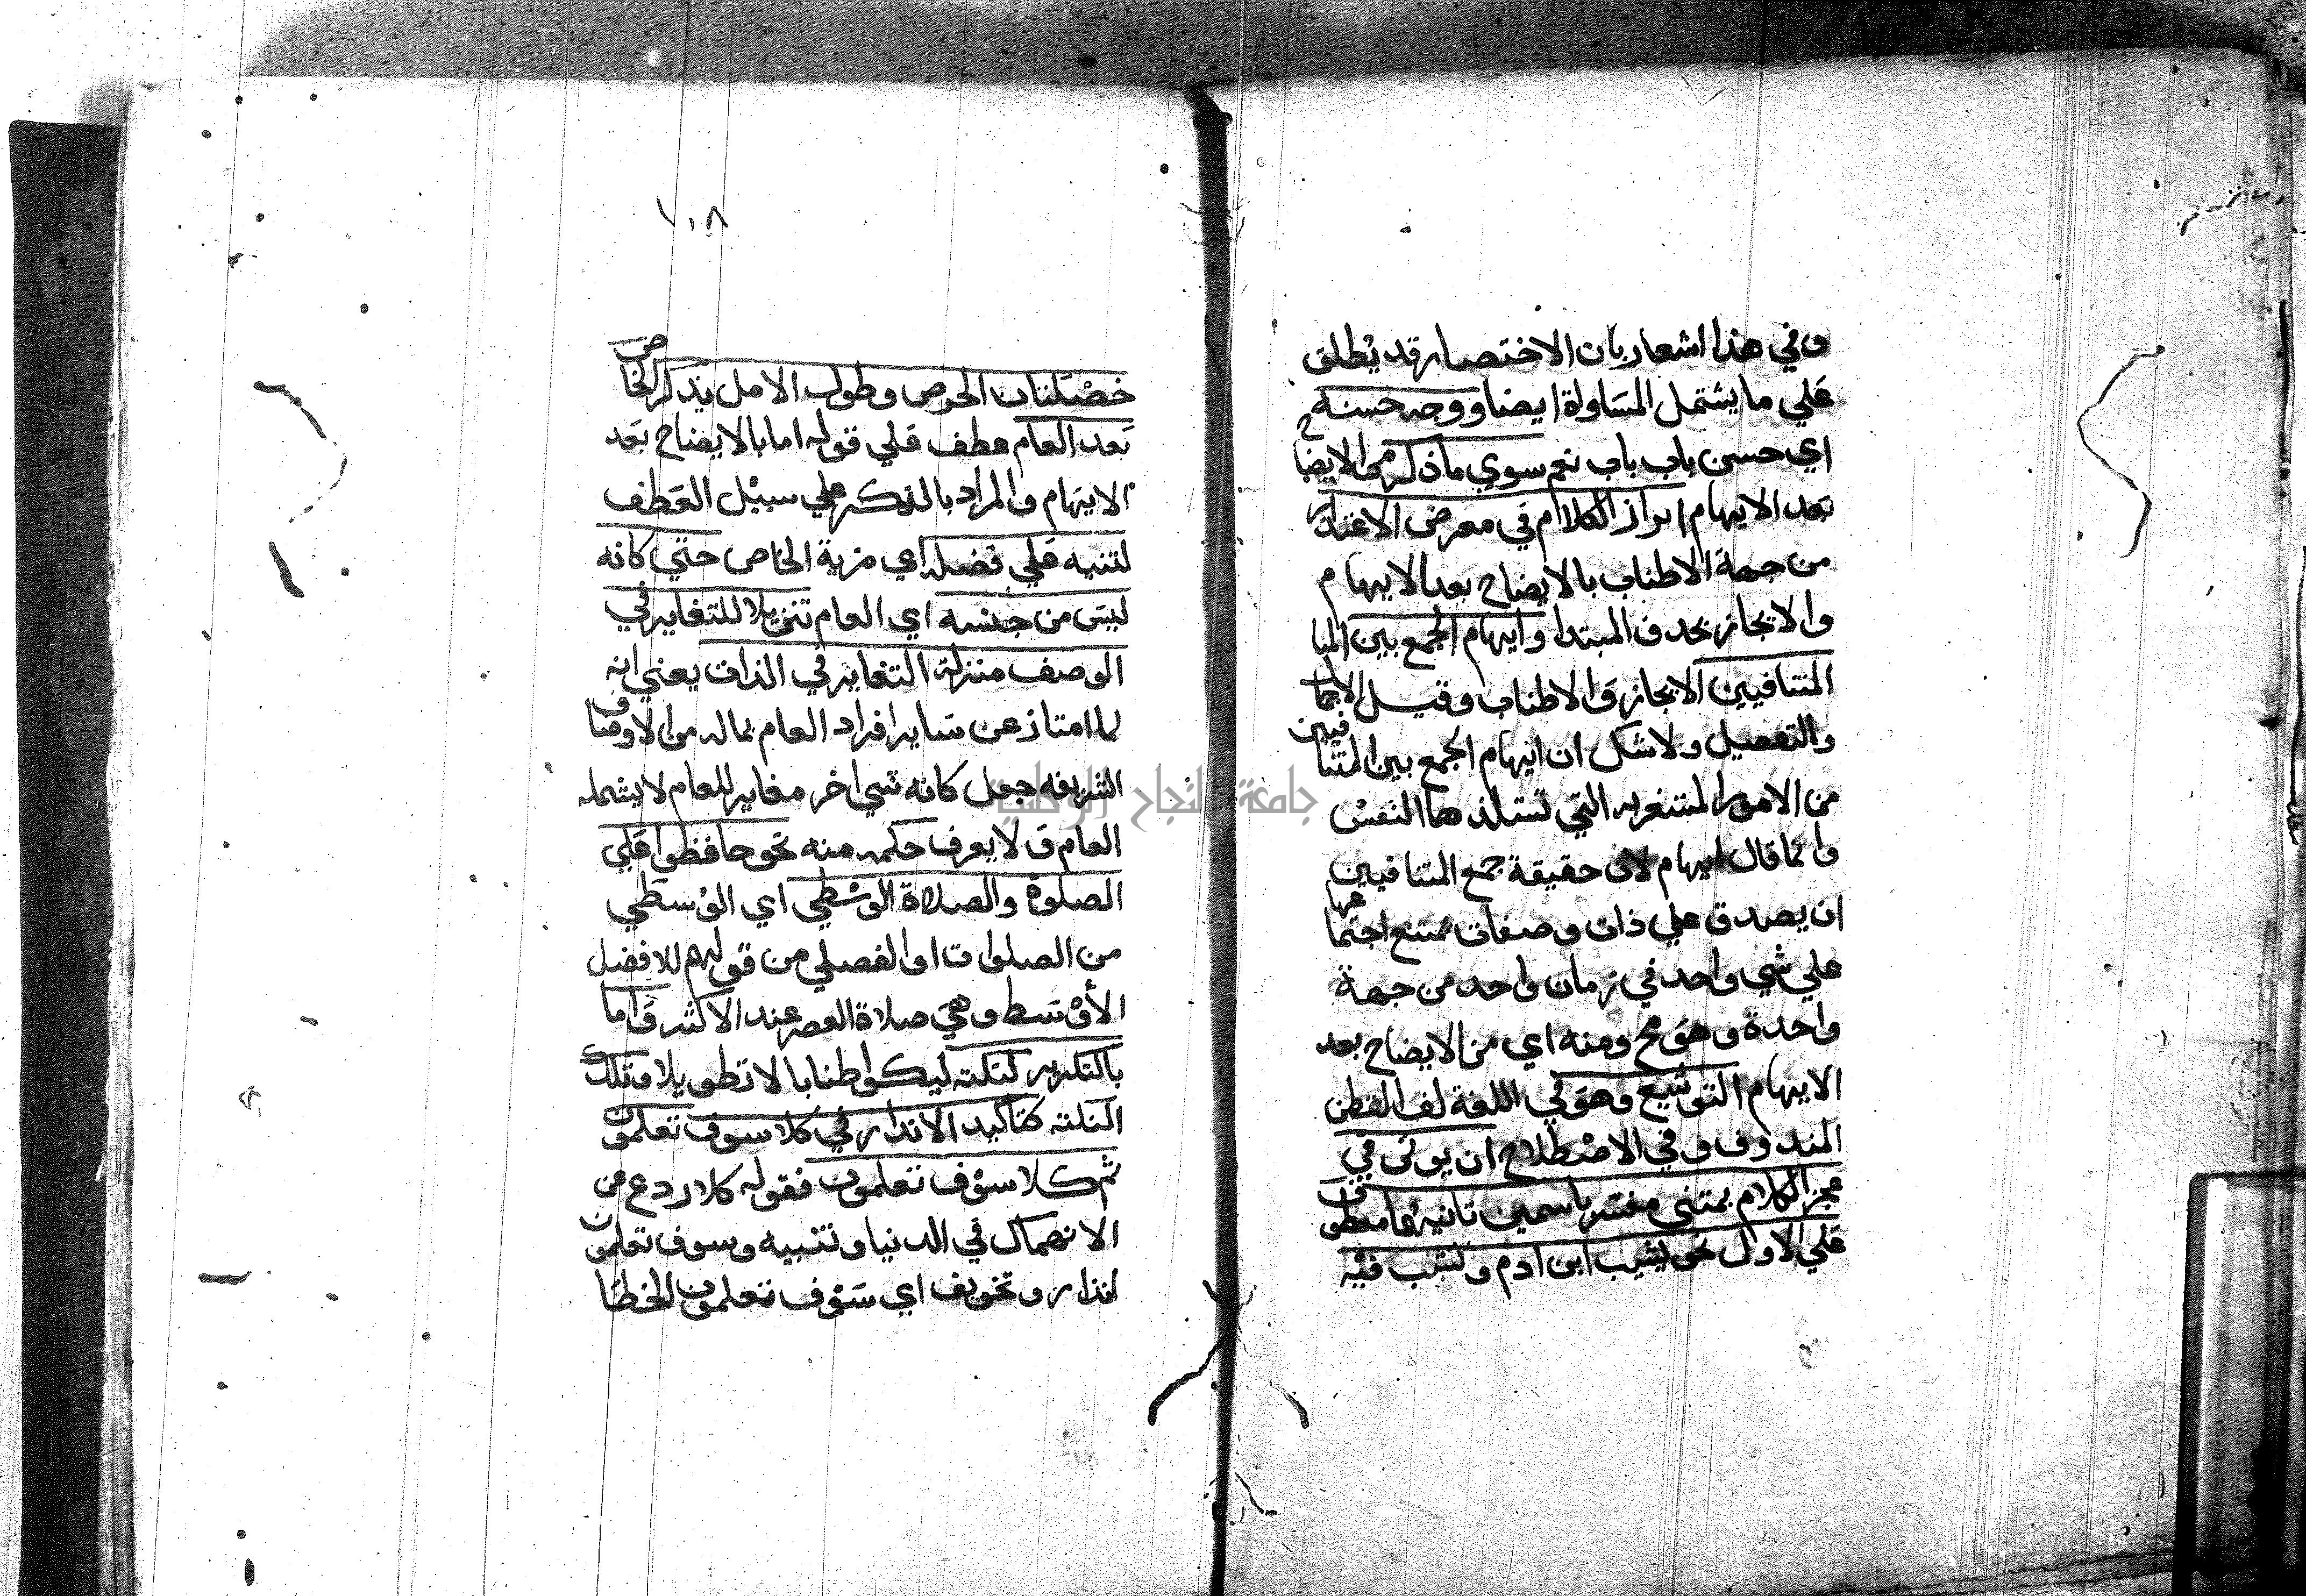 وفي هذا اشعار بان الاختصار قد يطلق
علي ما يشتمل المساواة ايضا ووجه حسنه
اي حسن باب باب نعم سوي ما ذكر من الايضاح
بعد الايهام ابراز الكلام في معرض الاعتدال
من جهة الاطناب بالايضاح بعد الايهام
والايجاز بحذف المبتدا وايهام الجمع بين المبا
المتنافيين الايجاز والاطناب وقيل الاجمال
والتفصيل ولاشك ان ايهام الجمع بين المتنافيين
من الامور المستغربه التي تستلذها النفس
وانما قال ايهام لان حقيقة جمع المتنافيين
ان يصدق علي ذات وصفات يمتنع اجتماعهما
علي شي واحد في زمان واحد من جهة
واحدة وهو مح ومنه اي من الايضاح بعد
الايهام التوشيع وهو في اللغة لف القطن
المندوف وفي الاصطلاح ان يوتى في
عجز الكلام بمتني مفسر باسمين ثانيهما معطوف
علي الاول نحو يشيب ابن ادم وتشب فيه
١٠٨
خصلتان الحرص وطول الامل بذكر الخاص
بعد العام عطف علي قوله اما بالايضاح بعد
الايهام والمراد بالذكر علي سبيل العطف
لتنبيه علي فضله اي مزية الخاص حتي كانه
ليس من جنسه اي العام تنزيلا للتغاير في
الوصف منزلة التغاير في الذات يعني انه
لما امتاز عن ساير افراد العام بماله من الاوصاف
الشريفه جعل كانه شي اخر مغاير للعام لا يشمله
العام ولا يعرف حكمه منه نحو حافظوا علي
الصلوة والصلاة الوسطي اي الوسطي
من الصلوات او الفضلي من قولهم للافضل
الأوسط وهي صلاة العصر عند الاكثر واما
بالتكرير لنكته ليكون اطنابا لا تطويلا وتلك
النكته كتاكيد الانذار في كلا سوف تعلمون
ثم كلا سوف تعلمون فقوله كلا ردع من
الانهماك في الدنيا وتنبيه وسوف تعلمون
انذار وتخويف اي سوف تعلمون الخطا
جامعة النجاح الوطنية